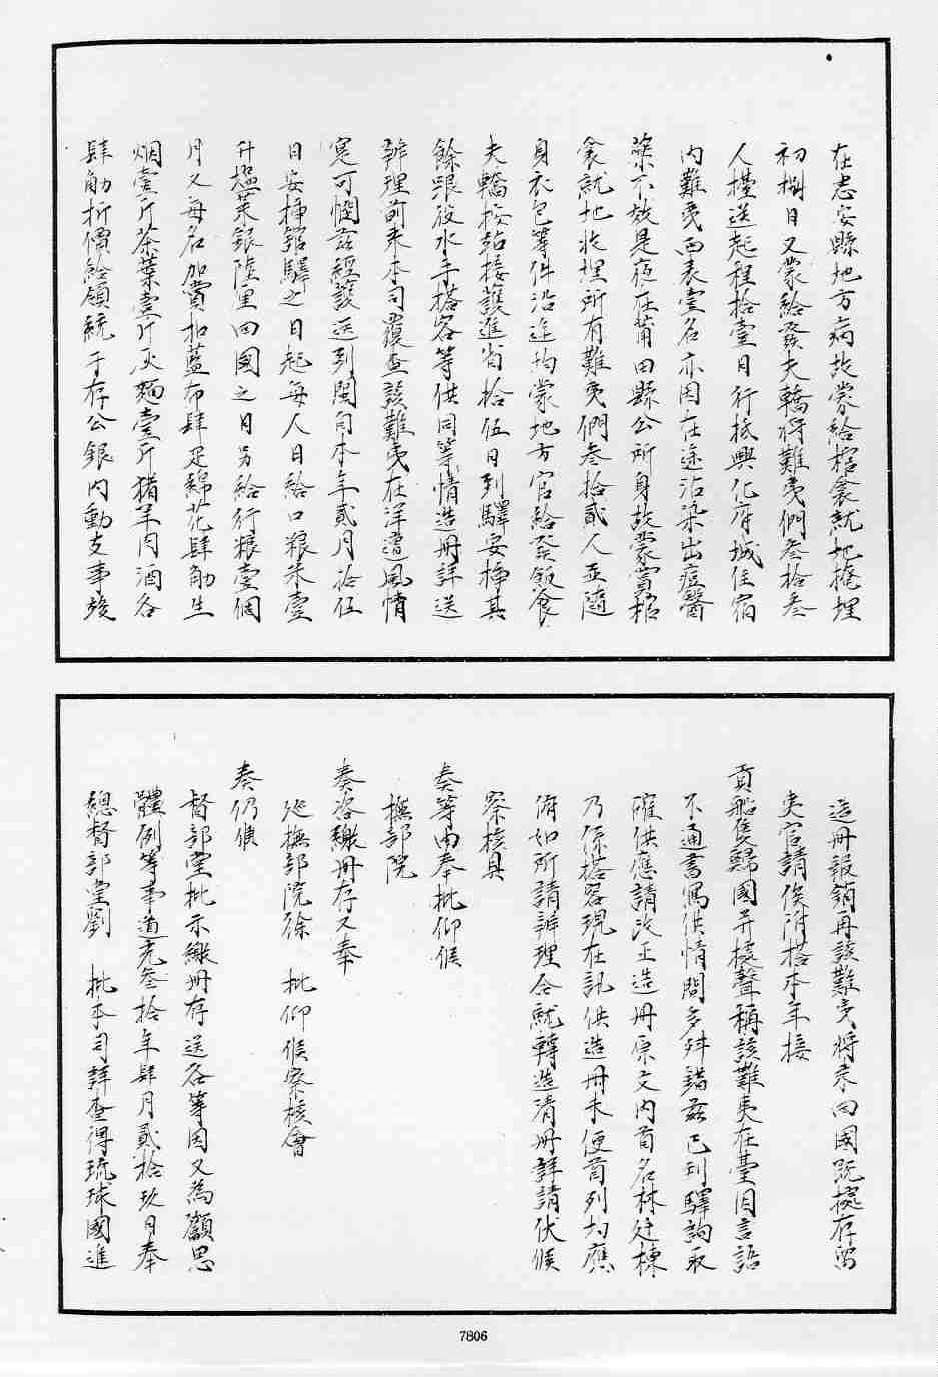 在惠安縣地方病故蒙給棺衾就地掩埋
初捌日又蒙給發夫轎將難夷們叁拾叁
人擡送起程拾壹日行抵興化府城住宿
內難夷西表壹名亦因在途沾染出痘醫
藥不效是夜在莆田縣公所身故蒙賞棺
衾就地收埋所有難夷們叁拾貳人並隨
身衣包等件沿途均蒙地方官給發飯食
夫轎按站接護進省拾伍日到驛安插其
餘跟役水手搭客等供同等情造冊詳送
辦理前來本司覆查該難夷在洋遭風情
寔可憫茲經護送到閩自本年貳月拾伍
日安插館驛之日起每人日給口粮米壹
升塩菜銀陸厘回國之日另給行粮壹個
月又每名加賞扣藍布肆疋綿花肆觔生
烟壹斤茶葉壹斤灰麵壹斤猪羊肉酒各
肆觔折價給領統于存公銀內動支事竣
造冊報銷再該難夷將來回國既據存留
夷官請俟附搭本年接
貢船隻歸國并據聲稱該難夷在臺因言語
不通書寫供情間多舛錯茲已到驛詢取
確供應請改正造冊原文內首名林廷棟
乃係搭客現在訊供造冊未便首列均應
俯如所請辦理合就轉造清冊詳請伏候
察核具
奏等由奉批仰候
撫部院
奏咨繳冊存又奉
廵撫部院徐　批仰候察核會
奏仍候
督部堂批示繳冊存送各等因又為顧思
體例等事道光叁拾年肆月貳拾玖日奉
總督部堂劉　批本司詳查得琉球國進
7806